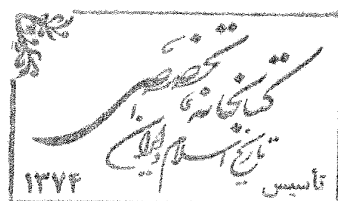 کتابخانهٔ تخصصی
تاریخ اسلام و ایران
تأسیس ۱۳۷۴